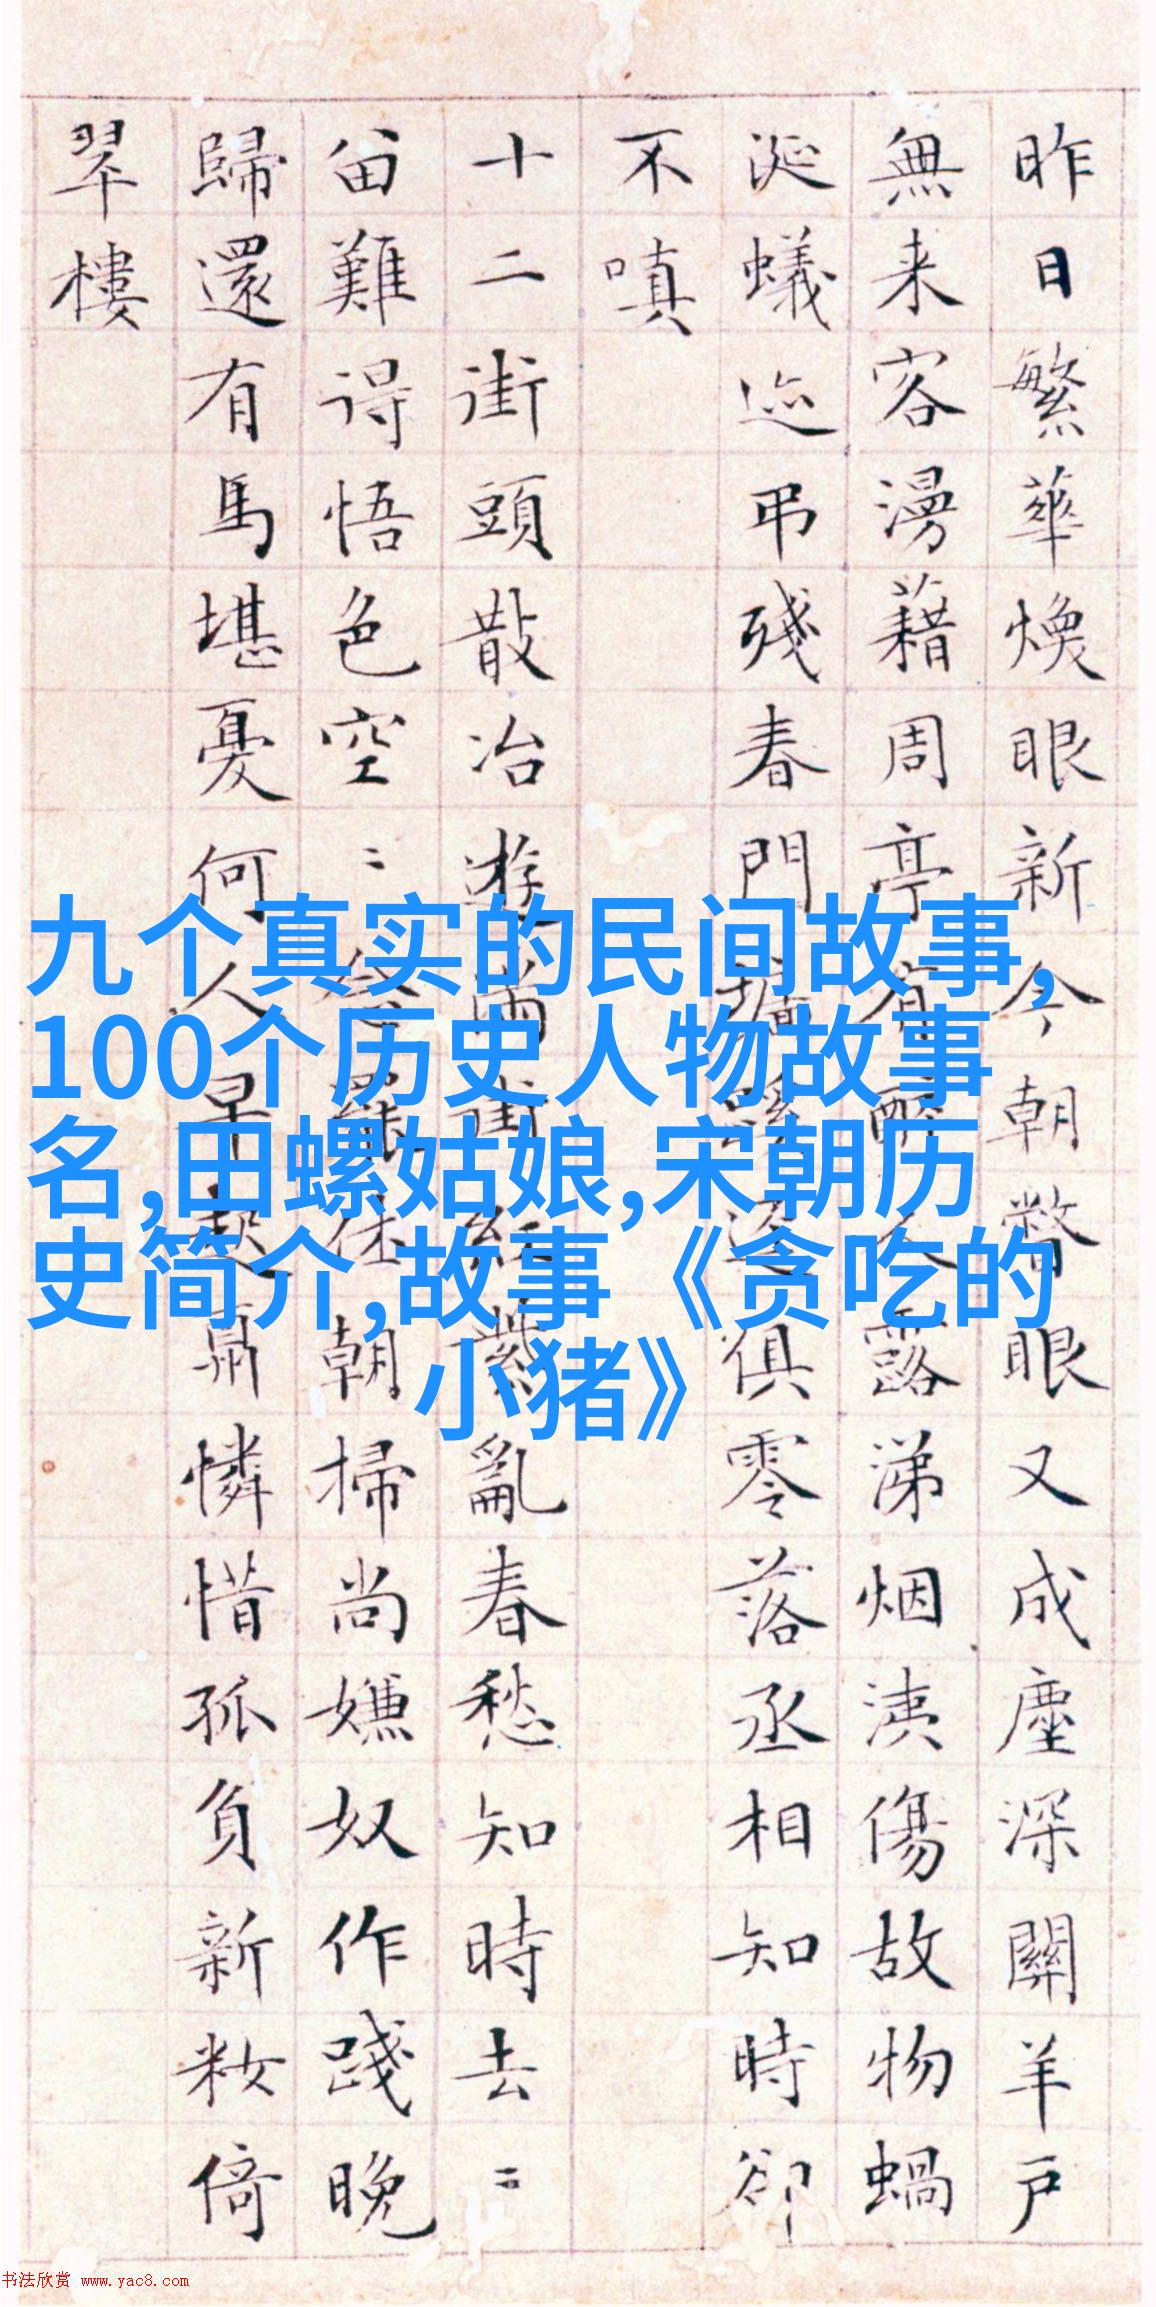 昨日繁華煥眼新今朝瞥眼又成塵深關羊戶
無来客漫藉周亭有醉人露涕烟洟傷故物蝸
涎蟻迹弔殘春門墻蹊逕俱零落丞相知時卻
不嗔
十二街頭散冶遊滿街紅紫亂春愁知時去〻
留難得悟色空〻念罷休朝掃尚嫌奴作踐晚
歸還有馬堪憂何人早起肩憐惜孤負新妝倚
翠樓
九个真实的民间故事,
100个历史人物故事
名,田螺姑娘,宋朝历
史简介,故事《贪吃的
小猪》
书法欣赏 www.yac8.com